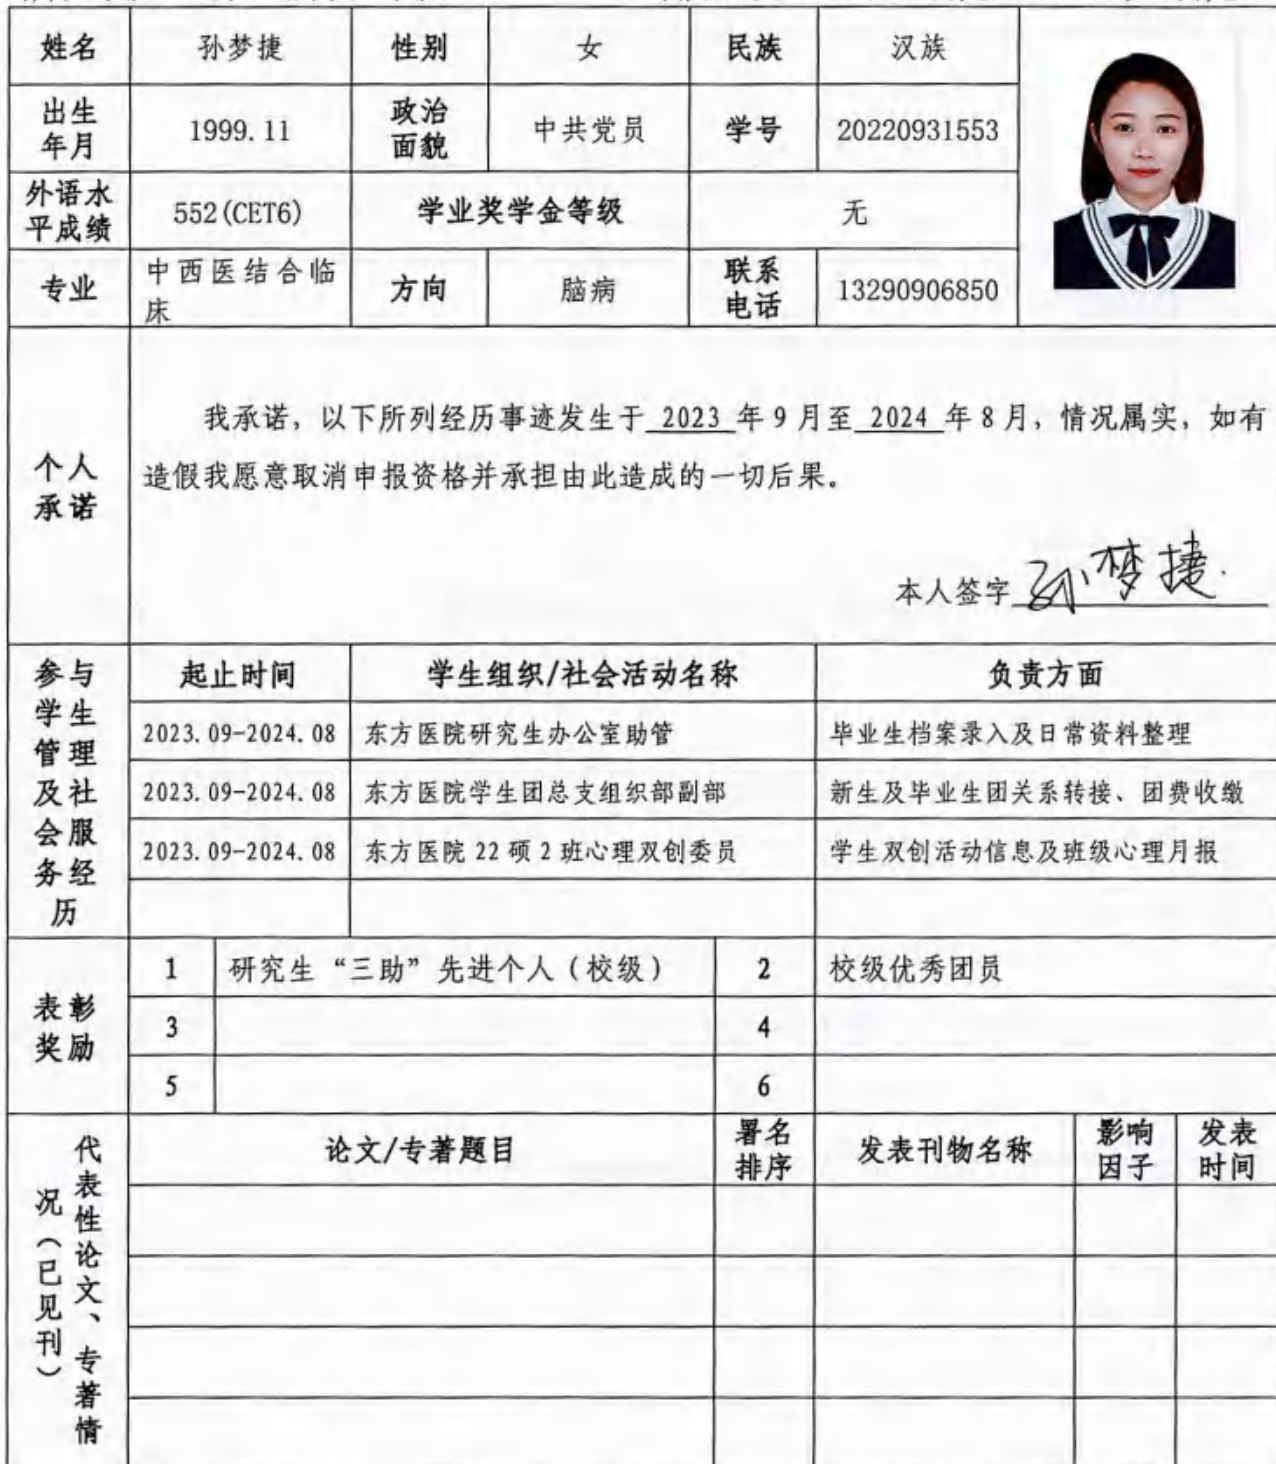 姓名 孙梦捷 性别 女 民族 汉族
出生年月 1999.11 政治面貌 中共党员 学号 20220931553
外语水平成绩 552(CET6) 学业奖学金等级 无
专业 中西医结合临床 方向 脑病 联系电话 13290906850
个人承诺
我承诺，以下所列经历事迹发生于 2023 年 9 月至 2024 年 8 月，情况属实，如有
造假我愿意取消申报资格并承担由此造成的一切后果。
本人签字 孙梦捷
参与学生管理及社会服务经历
起止时间 学生组织/社会活动名称 负责方面
2023.09-2024.08 东方医院研究生办公室助管 毕业生档案录入及日常资料整理
2023.09-2024.08 东方医院学生团总支组织部副部 新生及毕业生团关系转接、团费收缴
2023.09-2024.08 东方医院 22 硕 2 班心理双创委员 学生双创活动信息及班级心理月报
表彰奖励
1 研究生“三助”先进个人（校级） 2 校级优秀团员
3 4
5 6
代表性论文、专著情况（已见刊）
论文/专著题目 署名排序 发表刊物名称 影响因子 发表时间